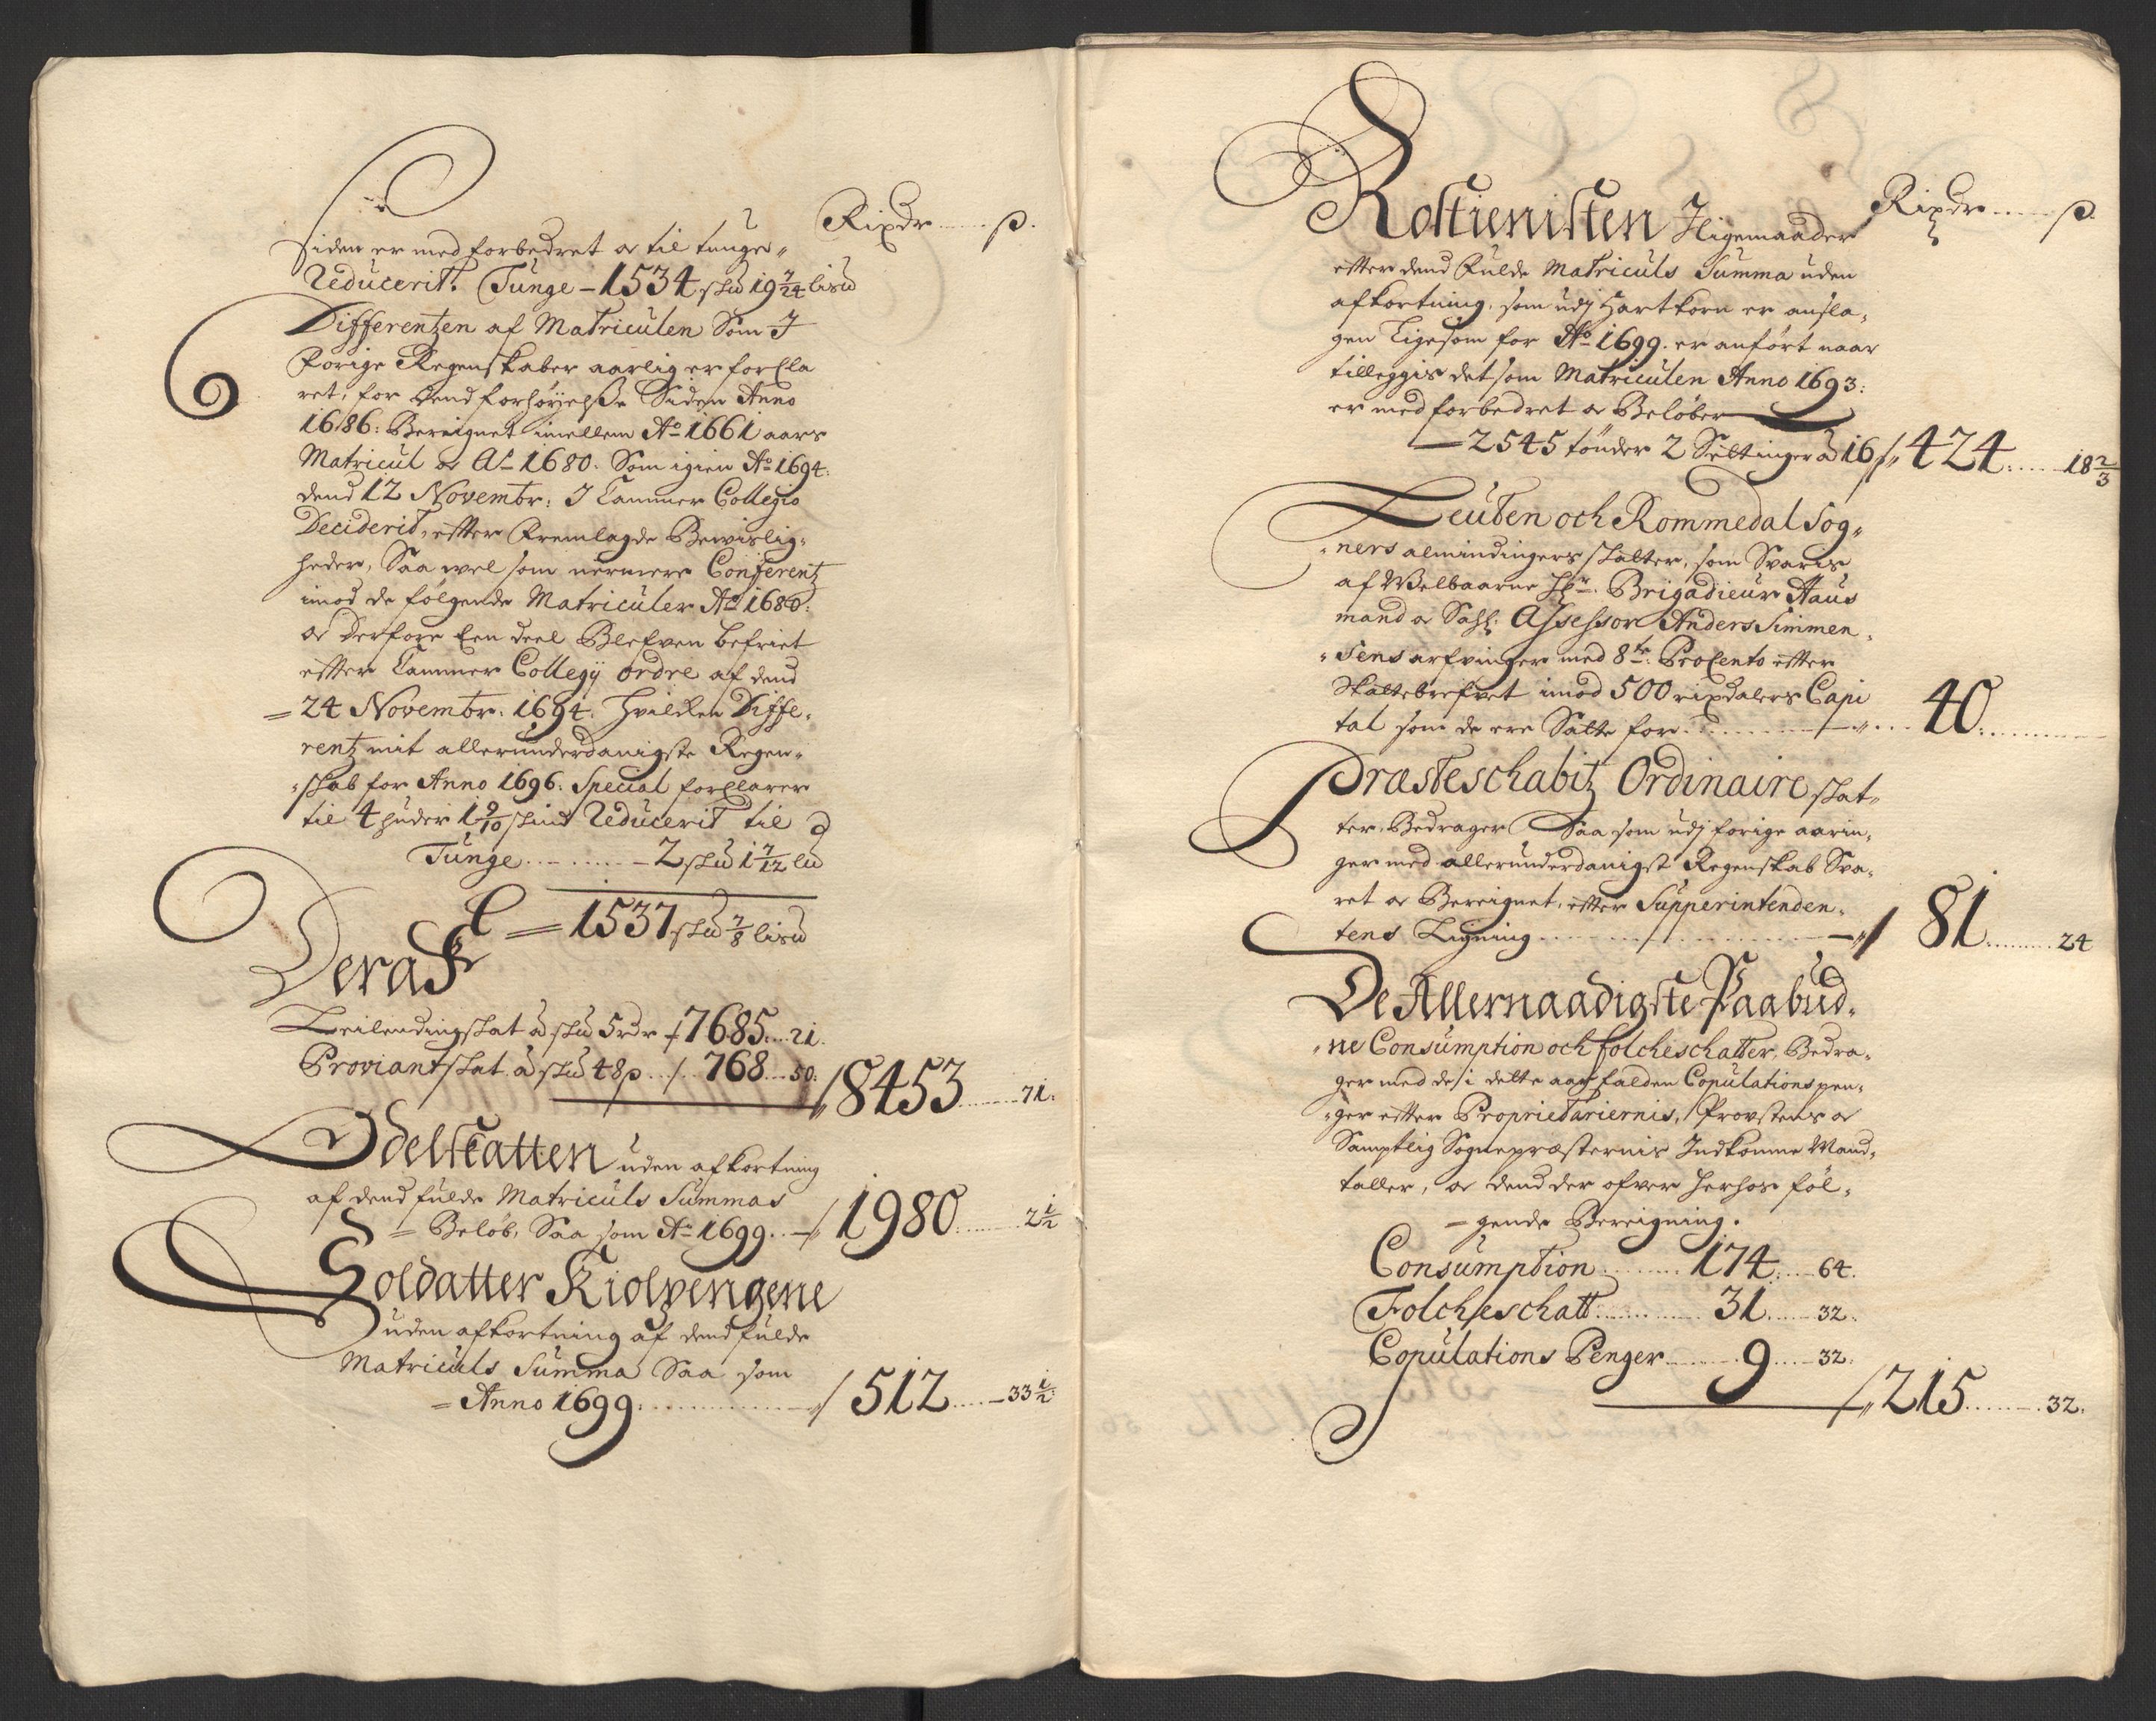 Rixdr ..... s.
Siden er med forbedret oc til tunger
Reducerit. Tunge - 1534 skłd 19 7/24 lisłd
Differentzen af Matriculen Som I
forige Regenskaber aarlig er forcla
ret, for dend forhøyelsse Siden Anno
1686: Bereignet imellem Ao 1661 aars
Matricul oc Ao 1680. Som igien Ao 1694.
dend 12 Novembr: I Cammer Collegio
Deciderit, efter fremlagde Bewislig-
heder, Saa vel som nermere Conferentz
imod de følgende Matriculer Ao 1680:
oc derfore Een deel Blefven befriet
efter Cammer Collegij ordre af dend
= 24 Novembr: 1694. Hvilcken Diffe-
rentz mit allerunderdanigste Regen-
-skab for Anno 1696. Special forclarer
til 4 huder 1 9/10 skind Reducerit til
Tunge ........ 2 skłd 1 7/12 lłd
= 1537 skłd 7/8 lisłd
Deraf
Leilendingskat â skłd 5 rdr / 7685 ... 21.
Proviantskat â skłd 48 s .. / . 768 ... 50.
/ 8453 ....... 71.
Odelskatten uden afkortning
af dend fulde Matriculs Summas
= Beløb, Saa som Ao 1699. - / 1980 ...... 2 1/2
Soldatter Kiolpengene
uden afkortning af dend fulde
Matriculs Summa Saa som
= Anno 1699 ............ / 512 ..... 33 1/2
Rixdr ..... s.
Rostienisten Iligemaader
efter dend fulde Matriculs Summa uden
afkortning, som udj Hartkorn er ansla-
gen Ligesom for Ao 1699. er anført naar
tilleggis det som Matriculen Anno 1693:
er med forbedret oc Beløber
- 2545 tønder 2 Settinger â 16 s / 424 ..... 18 2/3
Leuten och Rommedal Sog-
-ners almindingers skatter, som Svaris
af Welbaarne Hr. Brigadieur Haus
mand oc Sahl: Assessor Anders Simmen-
-sens arfvinger med 8te Procento efter
Skøttebrefvet imod 500 rixdalers Capi
tal som de ere Satte for ........ 40 .........
Præsteschabitz Ordinaire skat-
ter. Bedrager Saa som udj forige aarin-
ger med allerunderdanigst Regenskab Sva-
ret oc Bereignet, efter Supperintenden-
tens Ligning .............. / 81 ....... 24
De Allernaadigste Paabud-
-ne Consumption och folcheschatter, Bedra-
ger med de i dette aar falden Copulations pen-
-ger efter Proprietariernis, Provstens oc
Samptlig Sognepræsternis Indkomne Mand-
taller, oc dend der ofver herhos føl-
- gende Bereigning.
Consumption ....... 174 .... 64.
Folcheschatt ......... 31 .... 32.
Copulations Penger ...... 9 .... 32.
/ 215 ....... 32.